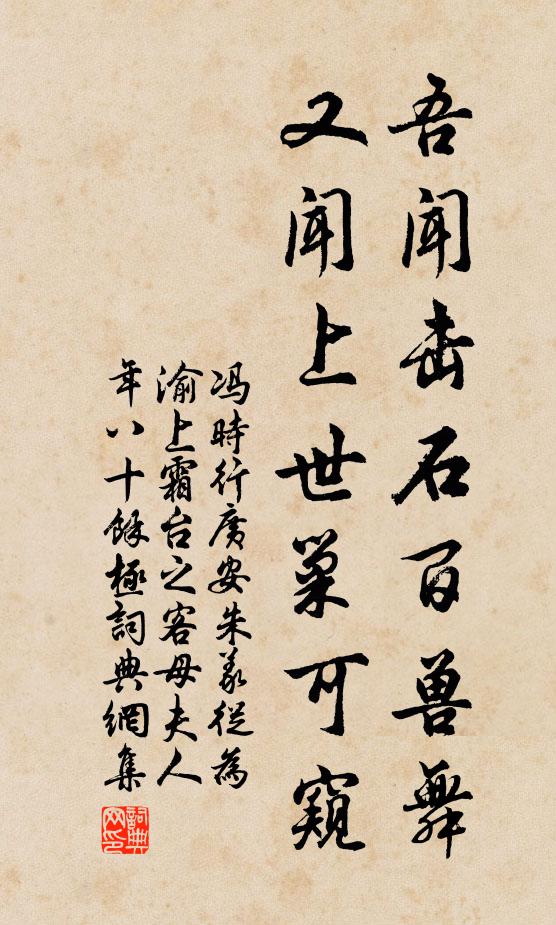 吾闻击石百兽舞
又闻上世巢可窥
冯時行廣安朱義従為
渝上霜台之客母夫人
年八十餘極詞典網集
詞典网印